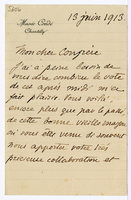 Musée Condé
Chantilly
13 juin 1913.
Mon cher Confrère
J'ai à peine besoin de
vous dire combien le vote
de ces après midi m'a
fait plaisir. Vous voilà,
encore plus que par le passé
de cette bonne vieille maison
où vous êtes venu si souvent
nous apporter votre très
précieuse collaboration et